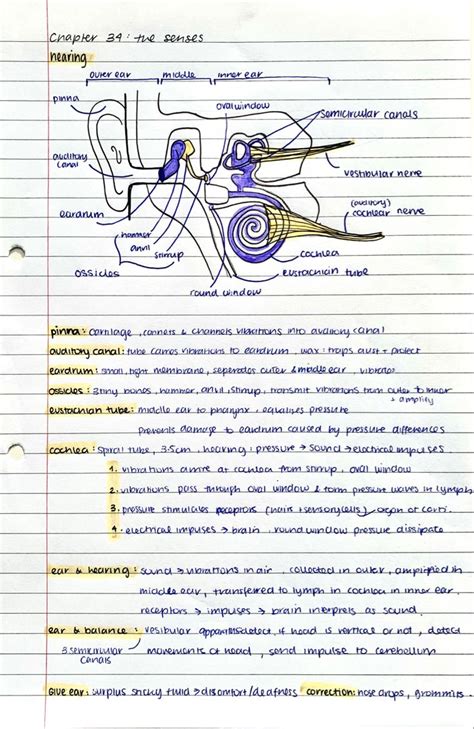 Chapter 34 : the senses
hearing
outer ear middle inner ear
pinna
oval window
semicircular canals
auditory canal
vestibular nerve
(auditory) cochlear nerve
eardrum
hammer
anvil
stirrup
ossicles
cochlea
eustachian tube
round window
pinna: cartilage, & channels vibrations into auditory canal
auditory canal: tube carries vibrations to eardrum, wax: traps dust + protect
eardrum: small, tight membrane, outer & middle ear, vibrates
ossicles: 3 tiny bones, hammer, anvil, stirrup, transmit vibrations from outer to inner
+ amplify
eustachian tube: middle ear to pharynx, equalises pressure
prevents damage to eardrum caused by pressure differences
cochlea: spiral tube, 3.5cm, hearing, pressure → sound → electrical impulses
1. vibrations arrive at cochlea from stirrup, oval window
2. vibrations pass through oval window & form pressure waves in lymph
3. pressure stimulates receptors (hairs, sensory cells) organ of corti.
4. electrical impulses → brain, round window pressure dissipate
ear & hearing: sound → vibrations in air, collected in outer, amplified in
middle ear, transferred to lymph in cochlea in inner ear,
receptors → impulses → brain interprets as sound
ear & balance: apparatus detect if head is vertical or not, detect
3 semicircular canals movements of head, send impulse to cerebellum
Glue ear: surplus sticky fluid → /deafness correction: nose drops,